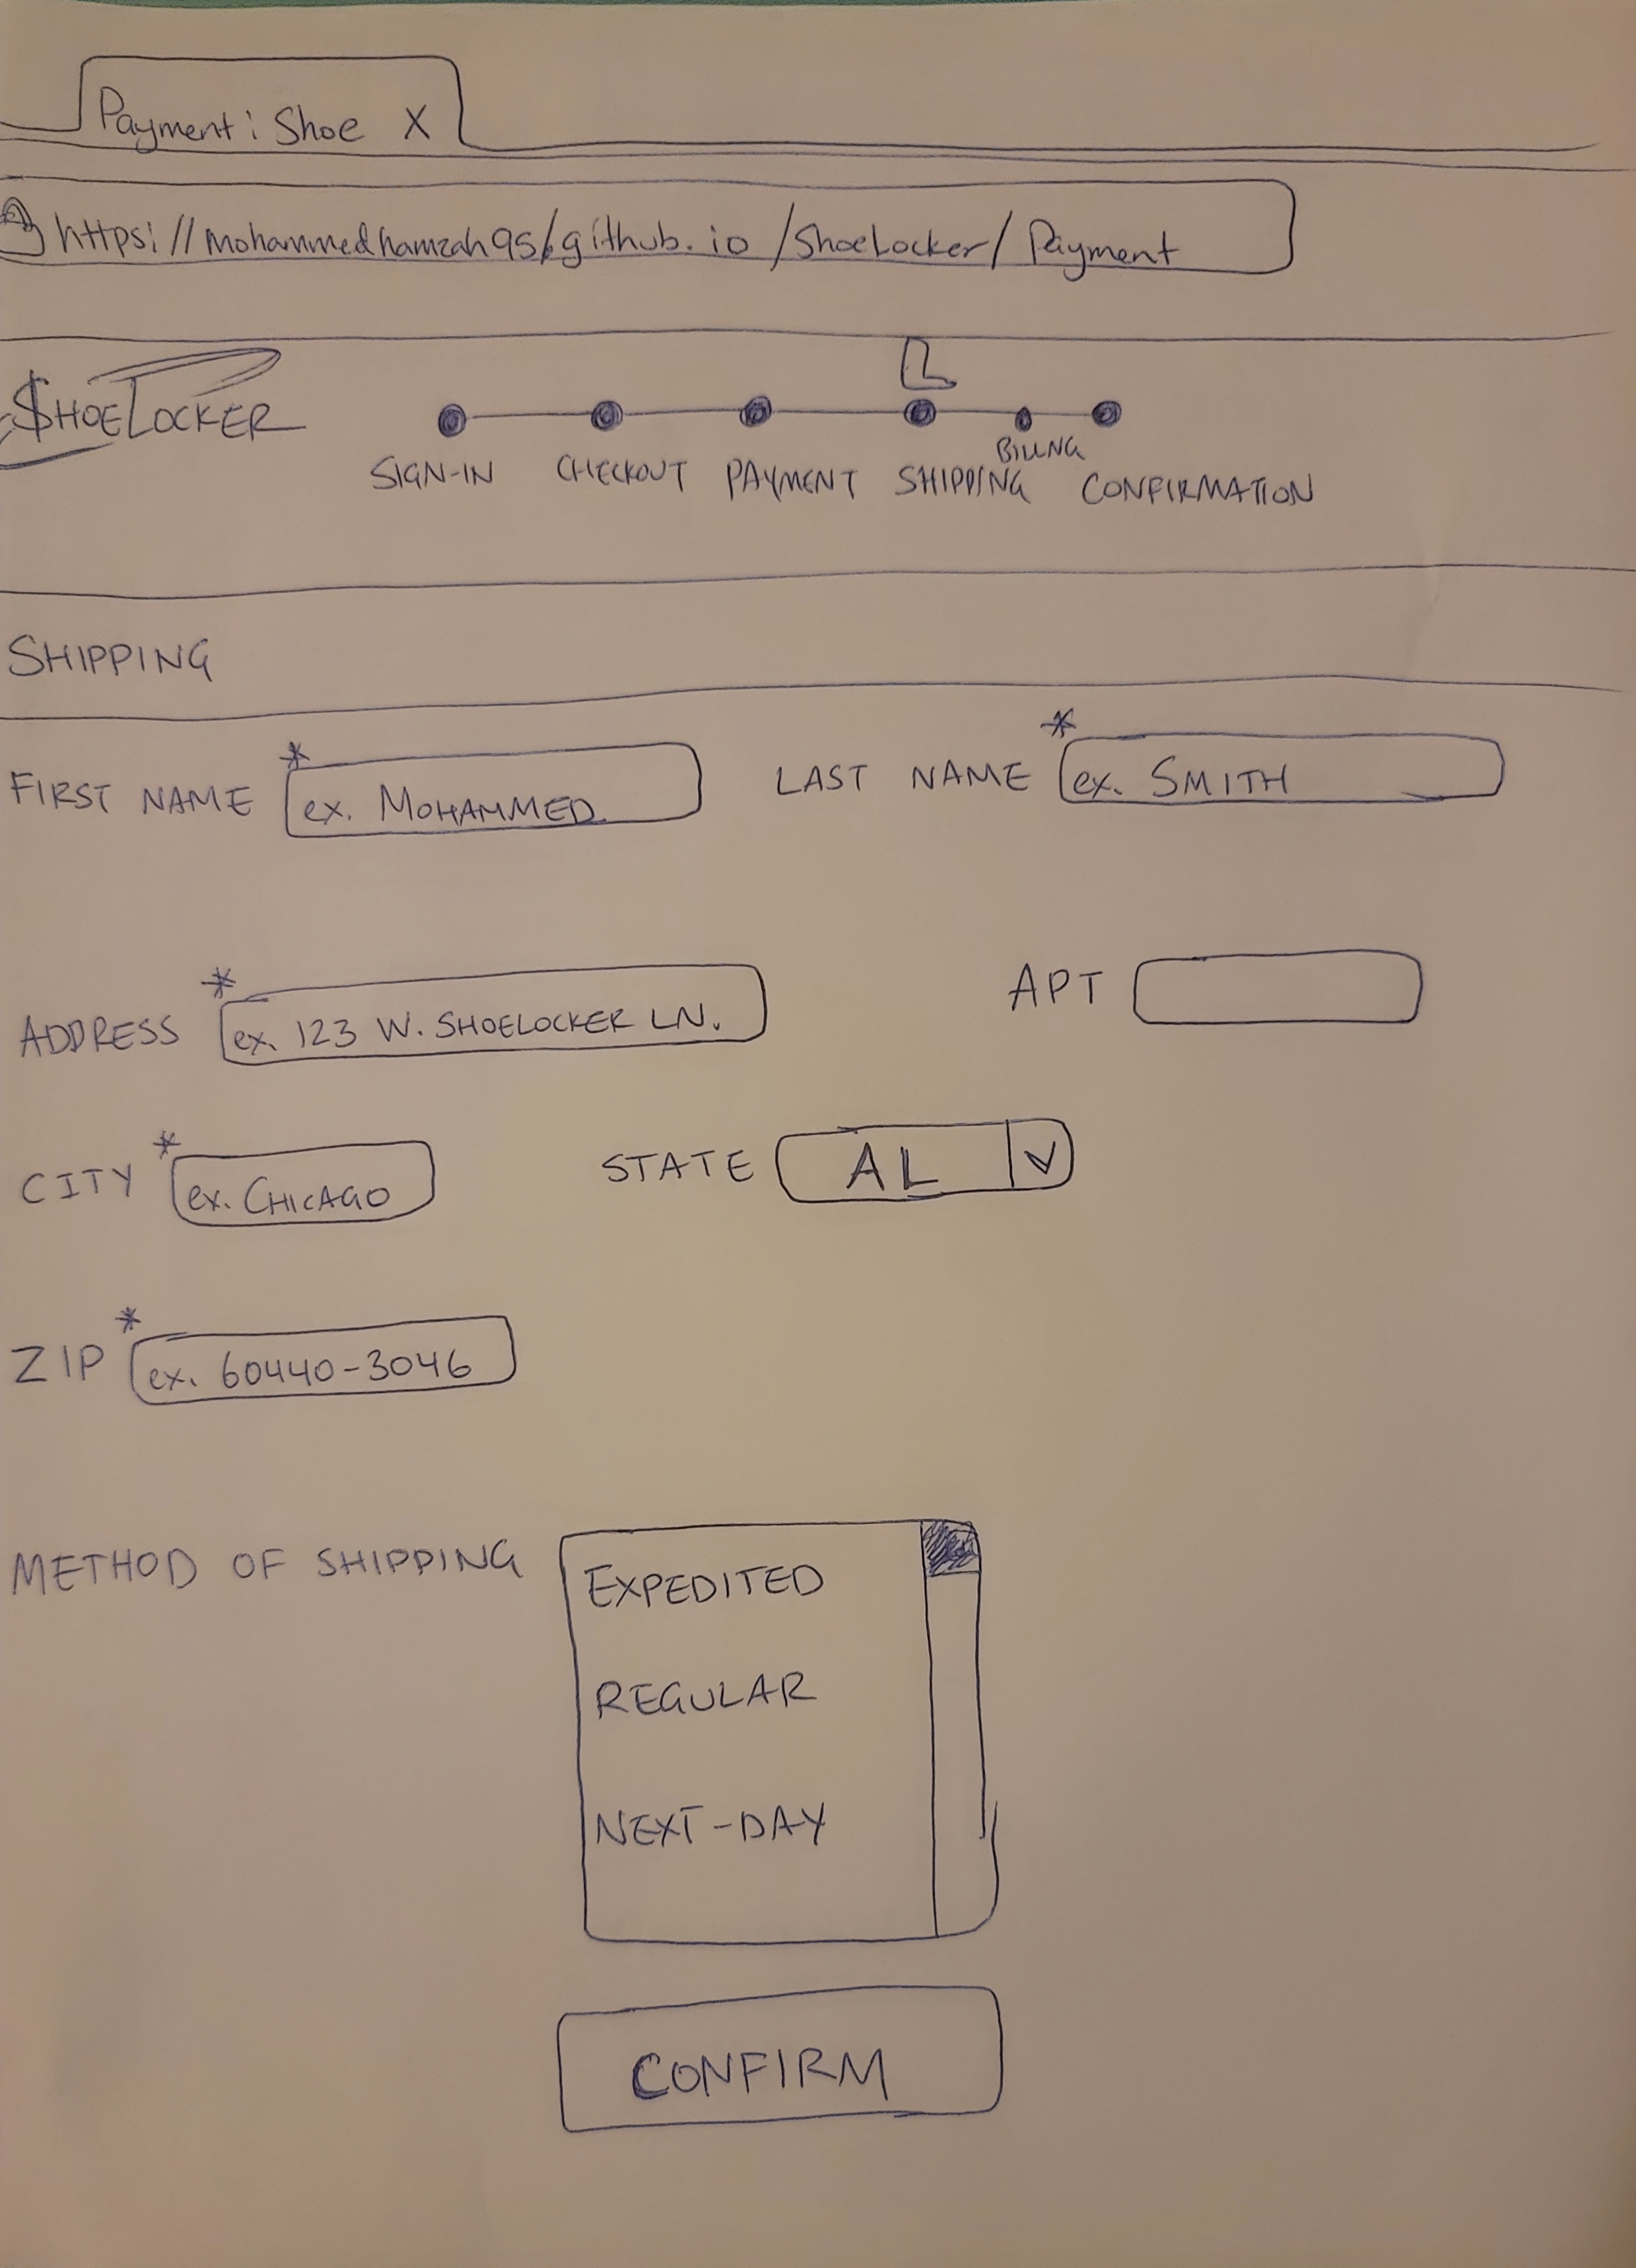 Payment: Shoe X
https://mohammedhamzah95/github.io/ShoeLocker/Payment
$HOELOCKER
SIGN-IN CHECKOUT PAYMENT SHIPPING BILLNG CONFIRMATION
SHIPPING
FIRST NAME * ex. MOHAMMED. LAST NAME * ex. SMITH
ADDRESS * ex. 123 W. SHOELOCKER LN. APT
CITY * ex. CHICAGO STATE AL
ZIP * ex. 60440-3046
METHOD OF SHIPPING EXPEDITED
REGULAR
NEXT-DAY
CONFIRM